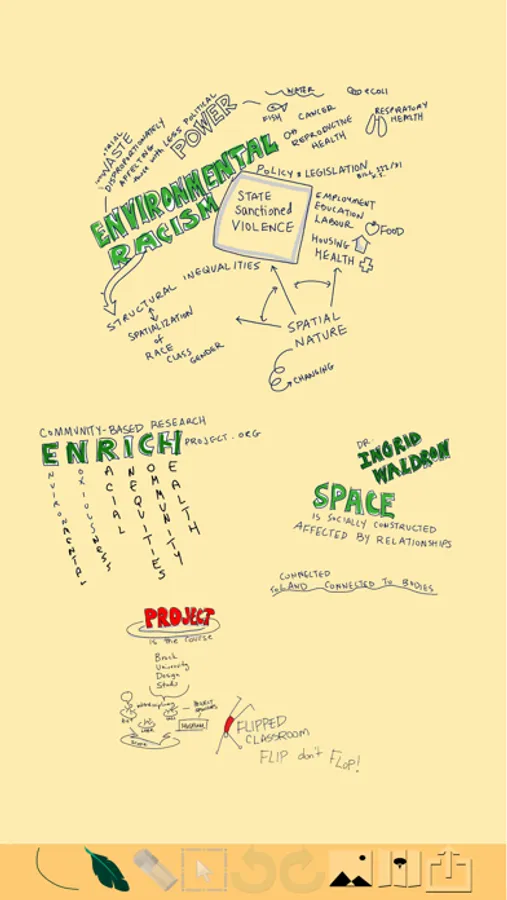 WATER
eColi
FISH
CANCER
REPRODUCTIVE
HEALTH
RESPIRATORY
HEALTH
WASTE
DISPROPORTIONATELY
AFFECTING
those with LESS POLITICAL
POWER
ENVIRONMENTAL
RACISM
POLICY & LEGISLATION
STATE
Sanctioned
VIOLENCE
EMPLOYMENT
EDUCATION
LABOUR
FOOD
HOUSING
HEALTH
STRUCTURAL INEQUALITIES
SPATIALIZATION
of
RACE
CLASS GENDER
SPATIAL
NATURE
CHANGING
COMMUNITY-BASED RESEARCH
ENRICH PROJECT.ORG
ENVIRONMENTAL
NOXIOUSNESS
RACIAL
INEQUITIES
COMMUNITY
HEALTH
DR.
INGRID
WALDRON
SPACE
IS SOCIALLY CONSTRUCTED
AFFECTED BY RELATIONSHIPS
CONNECTED
to LAND CONNECTED TO BODIES
PROJECT
is the course
Brock
University
Design
Studio
FLIPPED
CLASSROOM
FLIP don't FLOP!